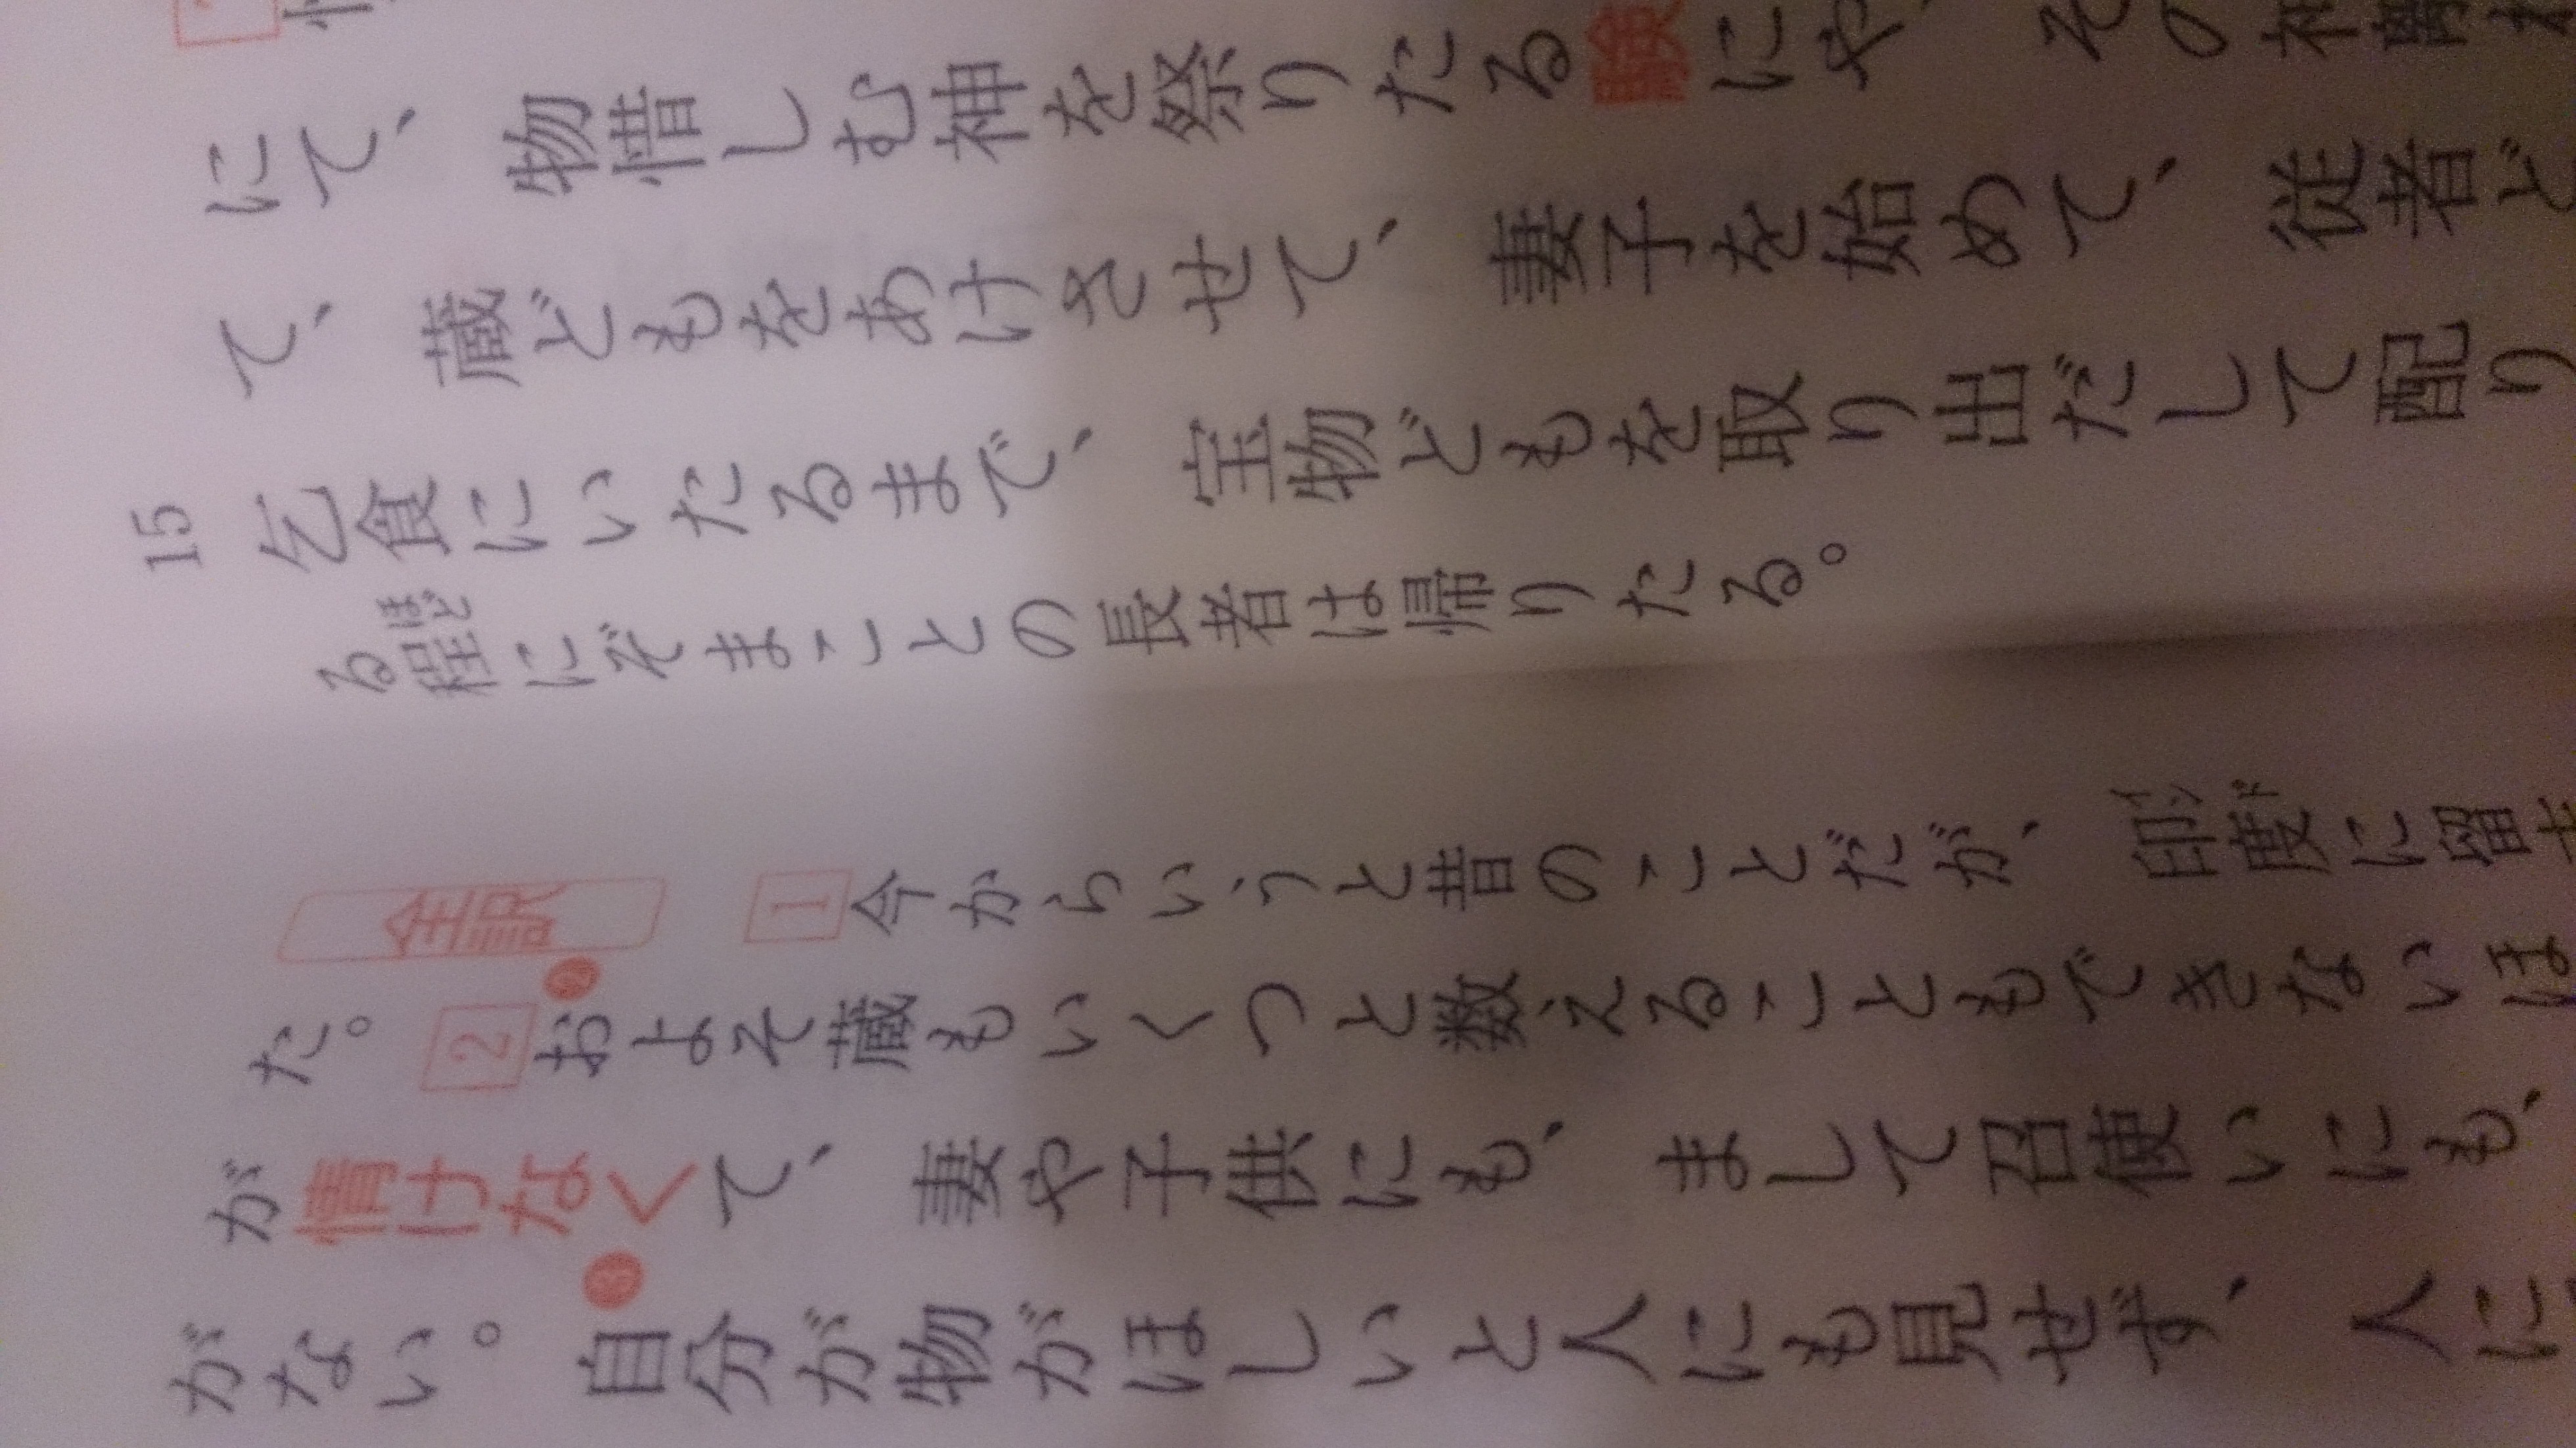 にて、物惜しむ神を祭りたる験にや、その神
て、蔵どもをあけさせて、妻子を始めて、従者ど
15 乞食にいたるまで、宝物どもを取り出だして配り
る程にぞまことの長者は帰りたる。
ほど
全訳 1 今からいうと昔のことだが、印度に留
インド
た。 2 ❷ およそ蔵もいくつと数えることもできないほ
が情けなくて、妻や子供にも、まして召使いにも、
がない。❸ 自分が物がほしいと人にも見せず、人に